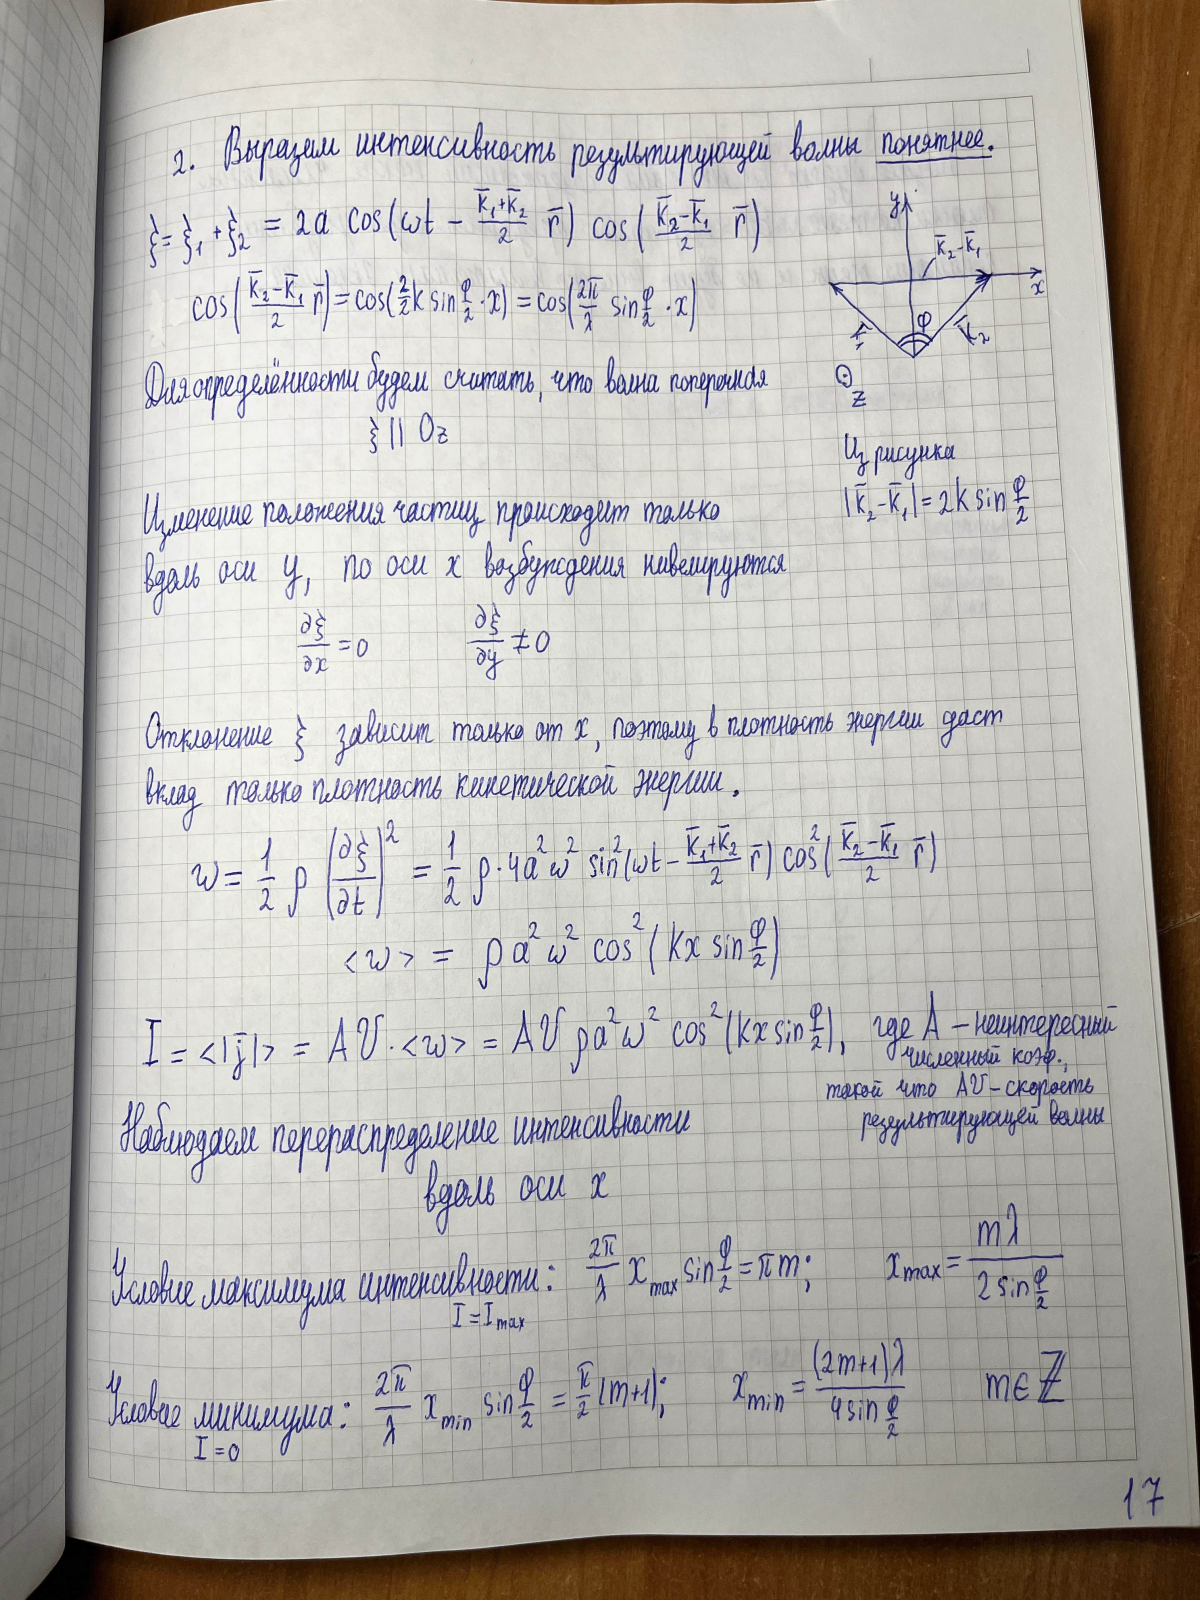 2. Выразим интенсивность результирующей волны понятнее.
ξ = ξ₁ + ξ₂ = 2a cos(ωt − (k̅₁+k̅₂)/2 r̅) cos((k̅₂−k̅₁)/2 r̅)
cos((k̅₂−k̅₁)/2 r̅) = cos(2/2 k sin φ/2 · x) = cos(2π/λ sin φ/2 · x)
y
k̅₂−k̅₁
x
φ
k̅₁
k̅₂
z
Для определённости будем считать, что волна поперечная
ξ || Oz
Из рисунка
|k̅₂−k̅₁| = 2k sin φ/2
Изменение положения частиц происходит только
вдоль оси y, по оси x возбуждения нивелируются
∂ξ/∂x = 0 ∂ξ/∂y ≠ 0
Отклонение ξ зависит только от x, поэтому в плотность энергии даст
вклад только плотность кинетической энергии.
w = 1/2 ρ (∂ξ/∂t)² = 1/2 ρ · 4a²ω² sin²(ωt − (k̅₁+k̅₂)/2 r̅) cos²((k̅₂−k̅₁)/2 r̅)
<w> = ρa²ω² cos²(kx sin φ/2)
I = <|j̅|> = Aυ · <w> = Aυρa²ω² cos²(kx sin φ/2), где A – неинтересный
численный коэф.,
такой что Aυ – скорость
результирующей волны
Наблюдаем перераспределение интенсивности
вдоль оси x
Условие максимума интенсивности: 2π/λ x_max sin φ/2 = πm; x_max = mλ/(2 sin φ/2)
I = I_max
Условие минимума: 2π/λ x_min sin φ/2 = π/2 (m+1); x_min = (2m+1)λ/(4 sin φ/2) m∈ℤ
I = 0
17